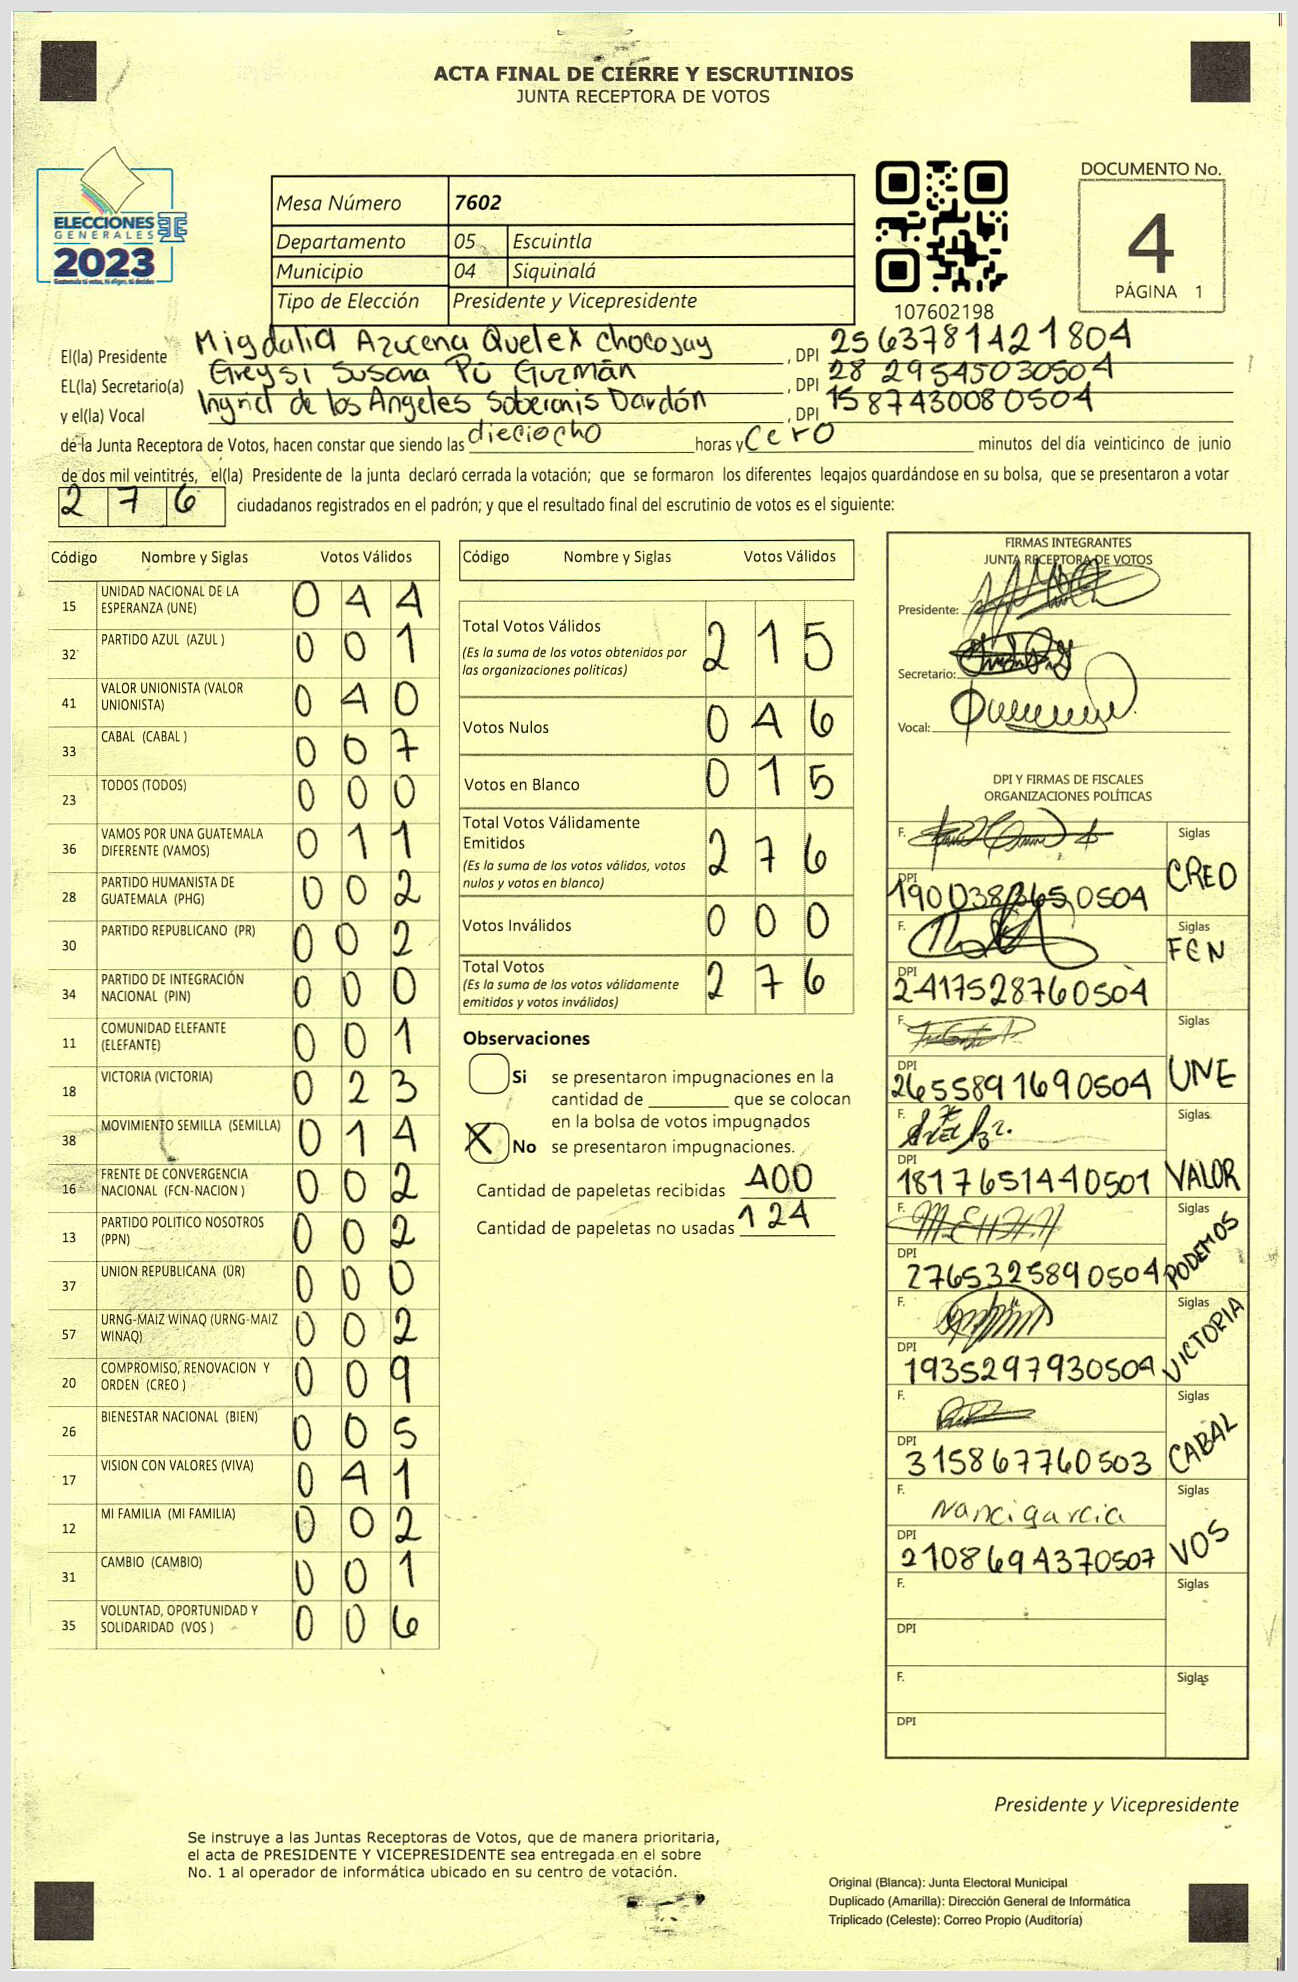 ACTA FINAL DE CIERRE Y ESCRUTINIOS
JUNTA RECEPTORA DE VOTOS
ELECCIONES
GENERALES
2023
Mesa Número 7602
Departamento 05 Escuintla
Municipio 04 Siquinalá
Tipo de Elección Presidente y Vicepresidente
107602198
DOCUMENTO No.
4
PÁGINA 1
El(la) Presidente Migdalia Azucena Quelex Chocojay, DPI 2563781421804
EL(la) Secretario(a) Greysi Susana Pú Guzmán, DPI 2829545030504
y el(la) Vocal Ingrid de los Angeles Soberanis Dardón, DPI 1587430080504
de la Junta Receptora de Votos, hacen constar que siendo las dieciocho horas y cero minutos del día veinticinco de junio
de dos mil veintitrés, el(la) Presidente de la junta declaró cerrada la votación; que se formaron los diferentes legajos guardándose en su bolsa, que se presentaron a votar
276 ciudadanos registrados en el padrón; y que el resultado final del escrutinio de votos es el siguiente:
Código Nombre y Siglas Votos Válidos
15 UNIDAD NACIONAL DE LA ESPERANZA (UNE) 044
32 PARTIDO AZUL (AZUL ) 001
41 VALOR UNIONISTA (VALOR UNIONISTA) 040
33 CABAL (CABAL ) 007
23 TODOS (TODOS) 000
36 VAMOS POR UNA GUATEMALA DIFERENTE (VAMOS) 011
28 PARTIDO HUMANISTA DE GUATEMALA (PHG) 002
30 PARTIDO REPUBLICANO (PR) 002
34 PARTIDO DE INTEGRACIÓN NACIONAL (PIN) 000
11 COMUNIDAD ELEFANTE (ELEFANTE) 001
18 VICTORIA (VICTORIA) 023
38 MOVIMIENTO SEMILLA (SEMILLA) 014
16 FRENTE DE CONVERGENCIA NACIONAL (FCN-NACION ) 002
13 PARTIDO POLITICO NOSOTROS (PPN) 002
37 UNION REPUBLICANA (UR) 000
57 URNG-MAIZ WINAQ (URNG-MAIZ WINAQ) 002
20 COMPROMISO, RENOVACION Y ORDEN (CREO ) 009
26 BIENESTAR NACIONAL (BIEN) 005
17 VISION CON VALORES (VIVA) 041
12 MI FAMILIA (MI FAMILIA) 002
31 CAMBIO (CAMBIO) 001
35 VOLUNTAD, OPORTUNIDAD Y SOLIDARIDAD (VOS ) 006
Código Nombre y Siglas Votos Válidos
Total Votos Válidos 215
(Es la suma de los votos obtenidos por las organizaciones politicas)
Votos Nulos 046
Votos en Blanco 015
Total Votos Válidamente Emitidos 276
(Es la suma de los votos válidos, votos nulos y votos en blanco)
Votos Inválidos 000
Total Votos 276
(Es la suma de los votos válidamente emitidos y votos inválidos)
Observaciones
Si se presentaron impugnaciones en la
cantidad de ________ que se colocan
en la bolsa de votos impugnados
X No se presentaron impugnaciones.
Cantidad de papeletas recibidas 400
Cantidad de papeletas no usadas 124
FIRMAS INTEGRANTES
JUNTA RECEPTORA DE VOTOS
Presidente:
Secretario:
Vocal:
DPI Y FIRMAS DE FISCALES
ORGANIZACIONES POLÍTICAS
F. Siglas CREO
DPI
F. Siglas FCN
DPI 2417528760504
F. Siglas UNE
DPI 2655891690504
F. Siglas VALOR
DPI 1817651440501
F. Siglas PODEMOS
DPI 2765325890504
F. Siglas VICTORIA
DPI 1935297930504
F. Siglas CABAL
DPI 315867760503
F. Nanci garcia Siglas VOS
DPI 2108694370507
F. Siglas
DPI
F. Siglas
DPI
Presidente y Vicepresidente
Se instruye a las Juntas Receptoras de Votos, que de manera prioritaria,
el acta de PRESIDENTE Y VICEPRESIDENTE sea entregada en el sobre
No. 1 al operador de informática ubicado en su centro de votación.
Original (Blanca): Junta Electoral Municipal
Duplicado (Amarilla): Dirección General de Informática
Triplicado (Celeste): Correo Propio (Auditoría)